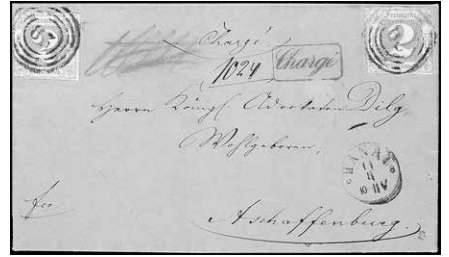 Chargé.
1024
Chargé
Herrn Königl Advokaten Dilg
Wohlgeboren,
HANAU
fco
Aschaffenburg.